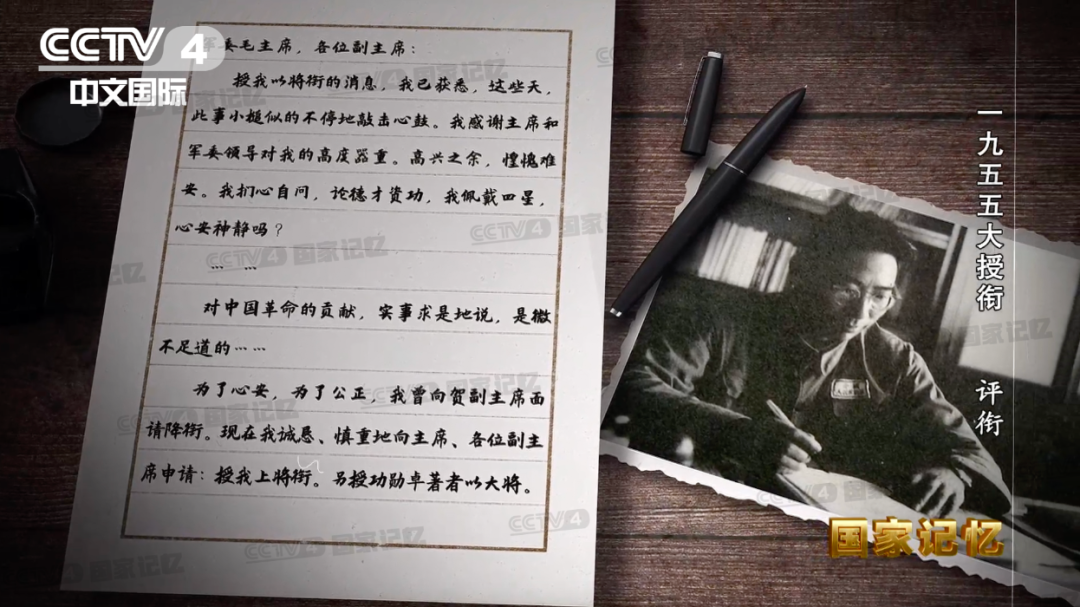 CCTV 4
中文国际
军委毛主席，各位副主席：
授我以将衔的消息，我已获悉，这些天，
此事小槌似的不停地敲击心鼓。我感谢主席和
军委领导对我的高度器重。高兴之余，惶愧难
安。我扪心自问，论德才资功，我佩戴四星，
心安神静吗？
… …
对中国革命的贡献，实事求是地说，是微
不足道的……
为了心安，为了公正，我曾向贺副主席面
请降衔。现在我诚恳、慎重地向主席、各位副主
席申请：授我上将衔。另授功勋卓著者以大将。
一九五五大授衔 评衔
国家记忆